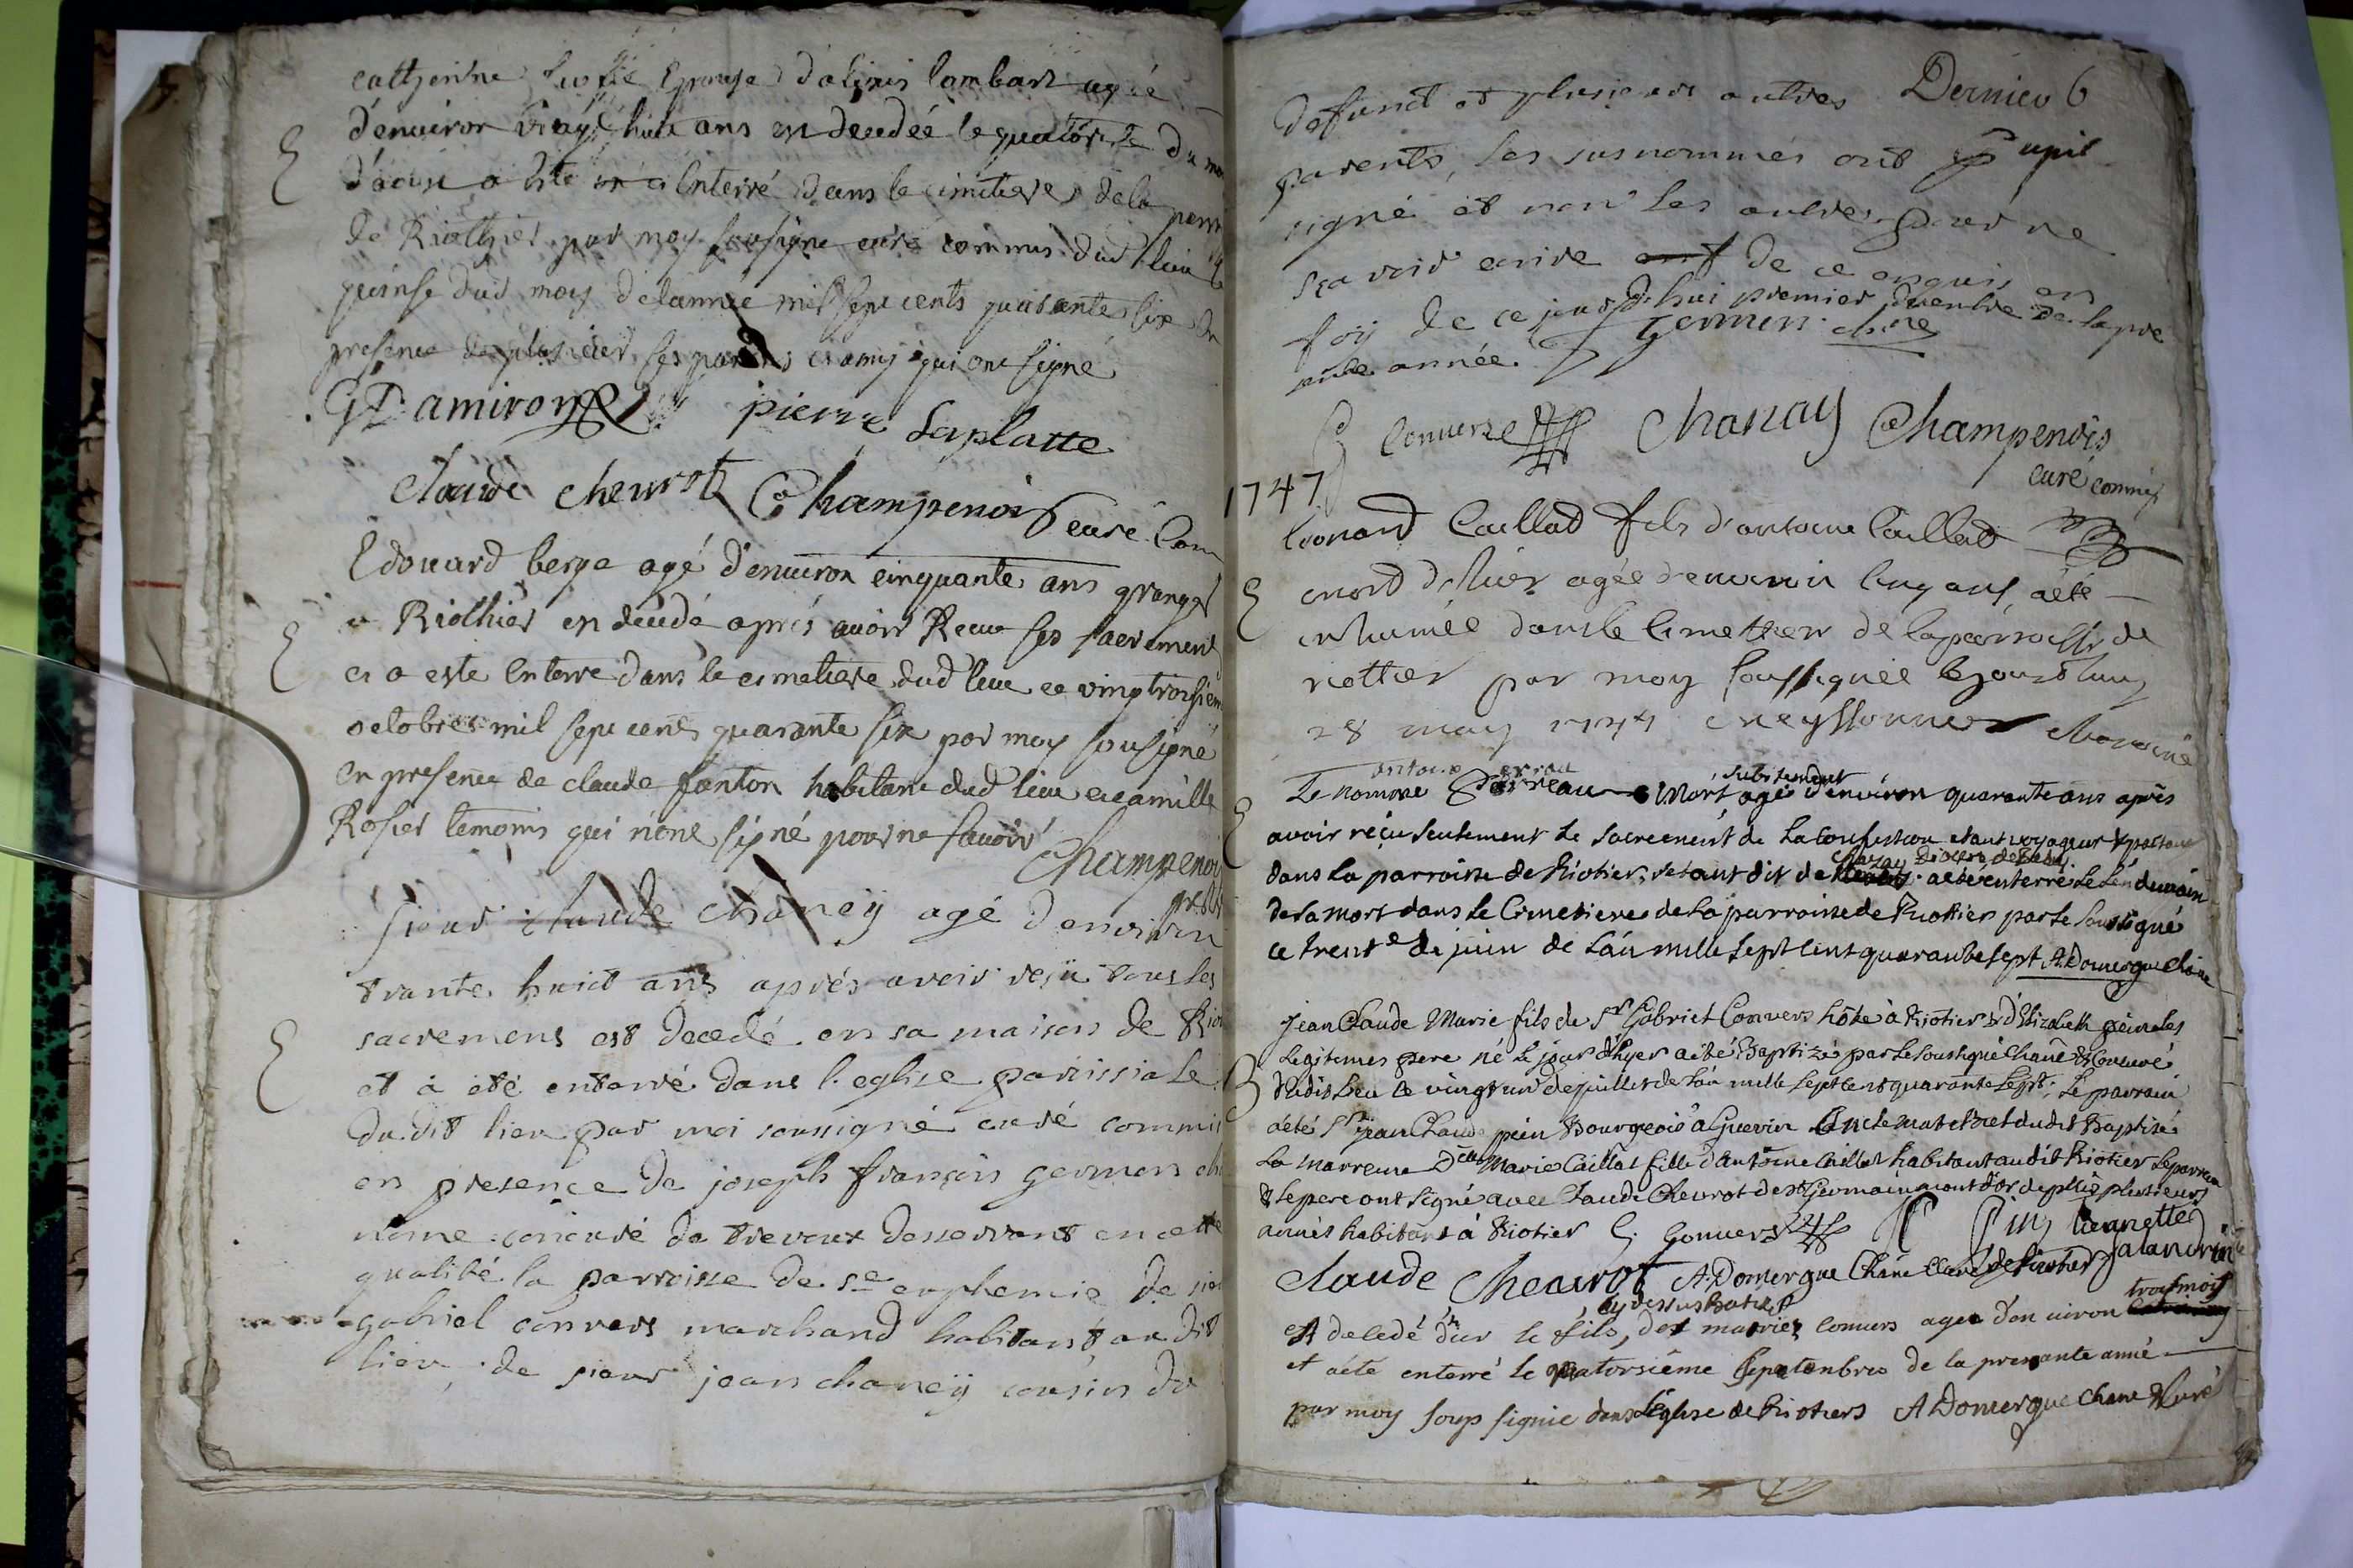 catherine epouse d'alexis lambart agé
d'enuiron vingt huit ans est decedée le quatorse du moi
d'aoust a esté enterré dans le cimitiere de la parr
de Riothier par moy sousigne curé commis dud lieu le
quinse dud moy de lannée mil sept cents quarante six en
presence de plusieurs ses parens et amis qui ont signé
GD amiron pierre Laplatte
claude cheurot Champenois curé Com
Edouard berge agé d'enuiron cinquante ans granger
a Riothier est decedé aprés auoir Receu ses sacrement
et a esté enterré dans le cimetiere dud lieu ce vingtroisiem
octobre mil sept cents quarante six par moy sousigné
en presence de claude fanton habitant dud lieu et camille
Rosier temoins qui n'ont signé pour ne sauoir
Champenoi
sieur claude chaneÿ agé d'environ
trante huict ans aprés avoir reçu tous les
sacremens est decedé en sa maison de Rio
et à eté enterré dans l'eglise paroissiale
du dit lieu par moi soussigné curé commis
en presence de joseph françois germen ch
noine curé de trevoux desservant en cette
qualité la parroisse de Ste euphemie de sie
gabriel convers marchand habitant au dit
lieu, de sieur jean chaneÿ cousin du
defunct et plusieurs autres Dernier 6
parents, les susnommés ont
signé et non les autres pour ne
sçavoir ecrire de ce enquis en
foy de ce jourd'hui premier decembre de la pre
sente année germen chne
Conuers Chanay Champenois
curé commis
1747
leonard Caillad fils d'antoine Caillad
mort d'hier agée d'enuiron cinq ans, a été
inhumée dans le cimettier de la parroisse de
riottier par moy soussignée le jourd'huy
28 may 1747 meyssonnier
antoine
subitement
Le nommé Perreau Mort agé d'environ quarante ans aprés
avoir reçu seulement le sacrement de la Confession etant voyageur & passant
Chazay
dans la parroisse de Riotier, setant dit de a été enterré le lendemain
de sa mort dans le Cimetiere de la parroisse de Riottier par le soussigné
ce trente de juin de l'an mille sept cent quarante sept A. Domergue Chane
jean Claude Marie fils de Sr Gabriel Convers hôte à Riotier & d'Elizabeth pein
legitimes pere né le jour d'hyer a été Baptizé par le soussigné Chane & Curé
dudit Lieu le vingt un de juillet de l'an mille sept cent quarante sept; le parrain
a été Sr jean Claude pein Bourgeois a Guerin Oncle maternel dudit Baptisé
La Marreine Dlle Marie Caillat fille d'Antoine Caillat habitant audit Riotier le parrein
& le pere ont signé avec Claude Cheurot de St Germain au mont d'or de plus plusieurs
amis habitans à Riotier G. Conuers
Claude Cheurot A. Domergue Chane Curé de Riotier
cy dessus batisé trois mois
Est decedé d'ier le fils, de marie Conuers agée d'enuiron
et a eté enterré le quatorsiême septembre de la presante anné
par moy soussigné dans L'églize de Riotiers A Domergue Chane & Curé